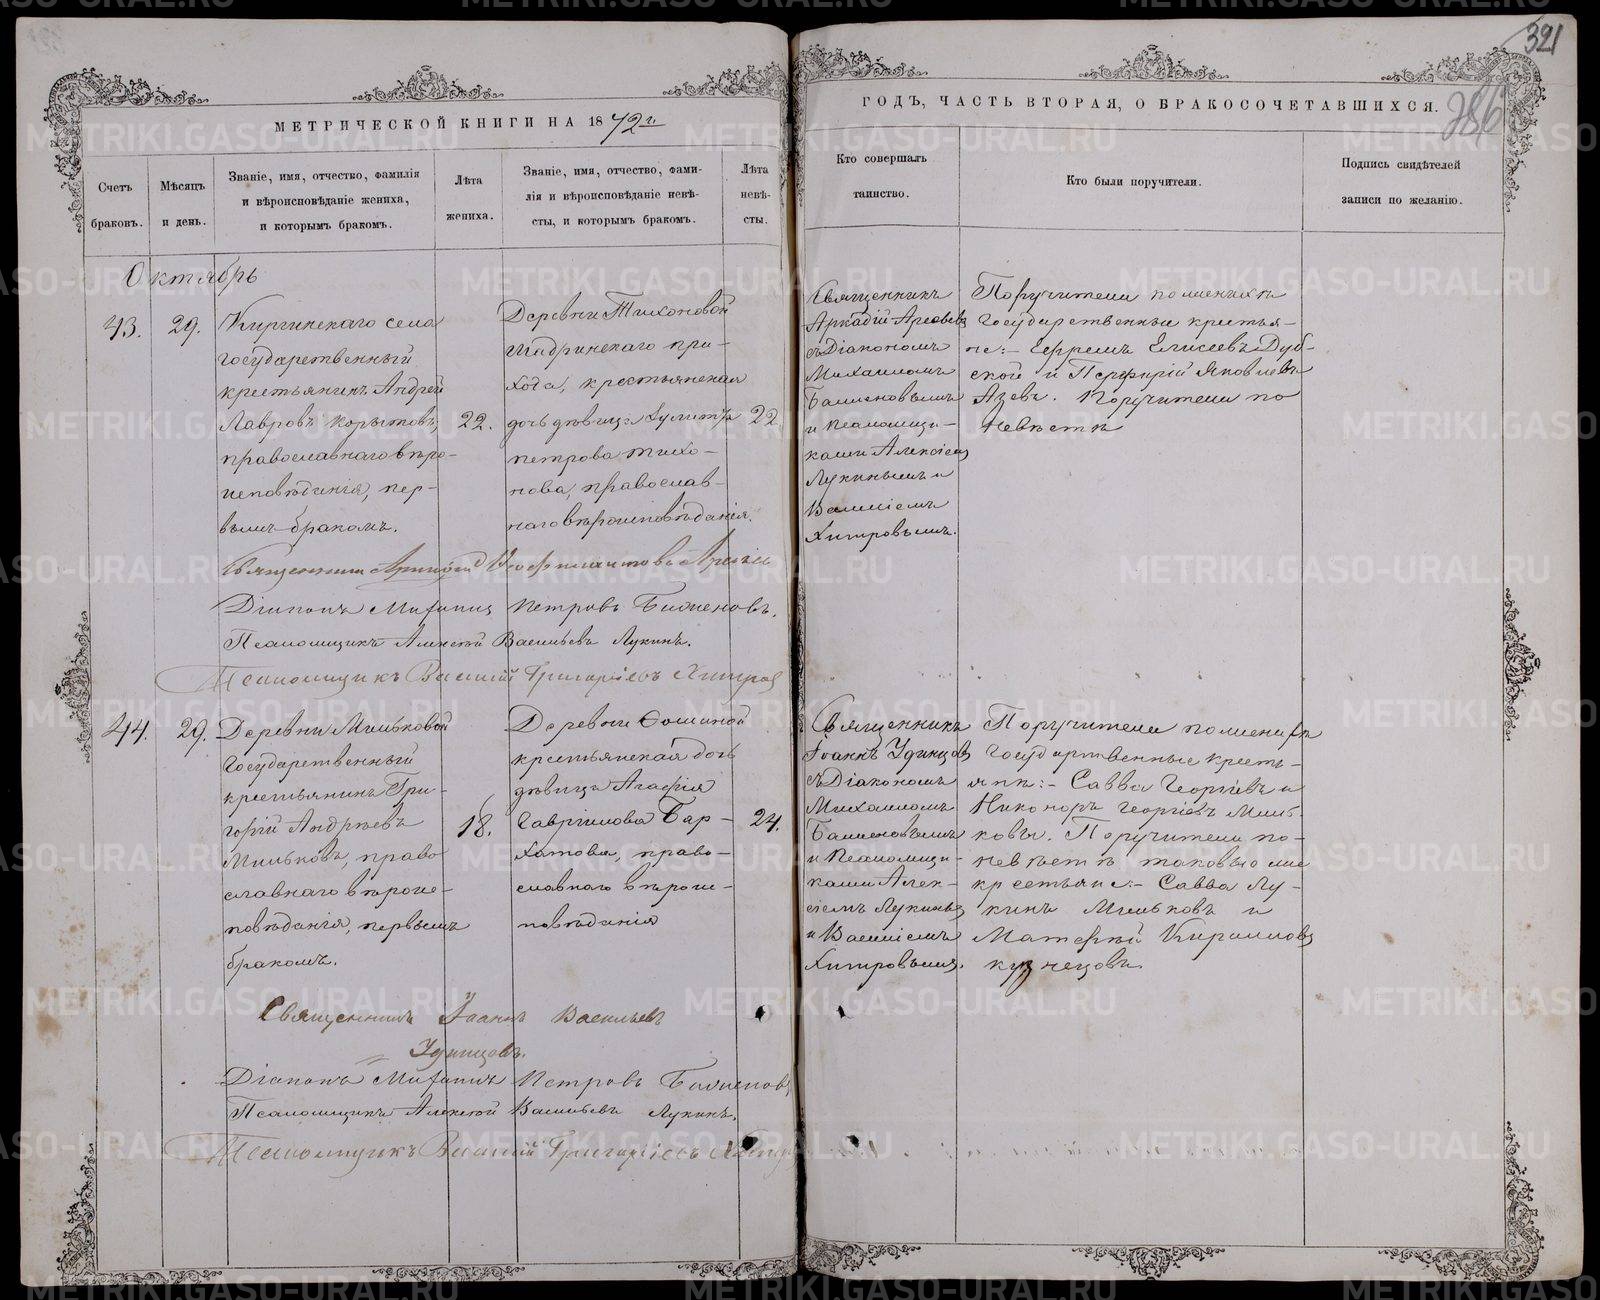 321
286
МЕТРИЧЕСКОЙ КНИГИ НА 1872 г.
ГОДЪ, ЧАСТЬ ВТОРАЯ, О БРАКОСОЧЕТАВШИХСЯ.
Счетъ браковъ.
Мѣсяцъ и день.
Званіе, имя, отчество, фамилія
и вѣроисповѣданіе жениха,
и которымъ бракомъ.
Лѣта
жениха.
Званіе, имя, отчество, фами-
лія и вѣроисповѣданіе невѣ-
сты, и которымъ бракомъ.
Лѣта
невѣ-
сты.
Кто совершалъ
таинство.
Кто были поручители.
Подпись свидѣтелей
записи по желанію.
Октябрь
43.
29.
Киргинскаго села
государственный
крестьянинъ Андрей
Лавровъ Корытовъ,
православнаго вѣро-
исповѣданія, пер-
вымъ бракомъ.
22.
Деревни Тихоновой
Шадринскаго при-
хода, крестьянская
дочь дѣвица Улита
Петрова Тихо-
нова, православ-
наго вѣроисповѣданія.
22
Священникъ
Аркадій
съ Діакономъ
Михаиломъ
и Псаломщи-
ками Алексѣемъ
Лукинымъ и
Василіемъ
Хитровымъ.
Поручители по женихѣ
государственные крестья-
не:- Ефремъ Елисеевъ Дуб-
ской и Перфирій Яковлевъ
Азевъ. Поручители по
невѣстѣ
Священникъ Аркадій
Діаконъ Михаилъ Петровъ
Псаломщикъ Алексѣй Васильевъ Лукинъ.
Псаломщикъ Василій Григорьевъ Хитровъ
44.
29.
Деревни Мильковой
государственный
крестьянинъ Гри-
горій Андреевъ
Мильковъ, право-
славнаго вѣроис-
повѣданія, первымъ
бракомъ.
18.
Деревни Ѳоминой
крестьянская дочь
дѣвица Агафія
Гаврилова Бар-
хатова, право-
славнаго вѣроис-
повѣданія
24.
Священникъ
Іоаннъ Удинцовъ
съ Діакономъ
Михаиломъ
и Псаломщи-
ками Алек-
сѣемъ Лукинымъ
и Василіемъ
Хитровымъ.
Поручители по женихѣ
государственные кресть-
яне:- Савва Георгіевъ и
Никоноръ Георгіевъ Миль-
ковы. Поручители по
невѣстѣ таковые же
крестьяне:- Савва Лу-
кинъ Мильковъ и
Матфѣй Кириловъ
Кузнецовъ.
Священникъ Іоаннъ Васильевъ
Удинцовъ.
Діаконъ Михаилъ Петровъ
Псаломщикъ Алексѣй Васильевъ Лукинъ.
Псаломщикъ Василій Григорьевъ
METRIKI.GASO-URAL.RU